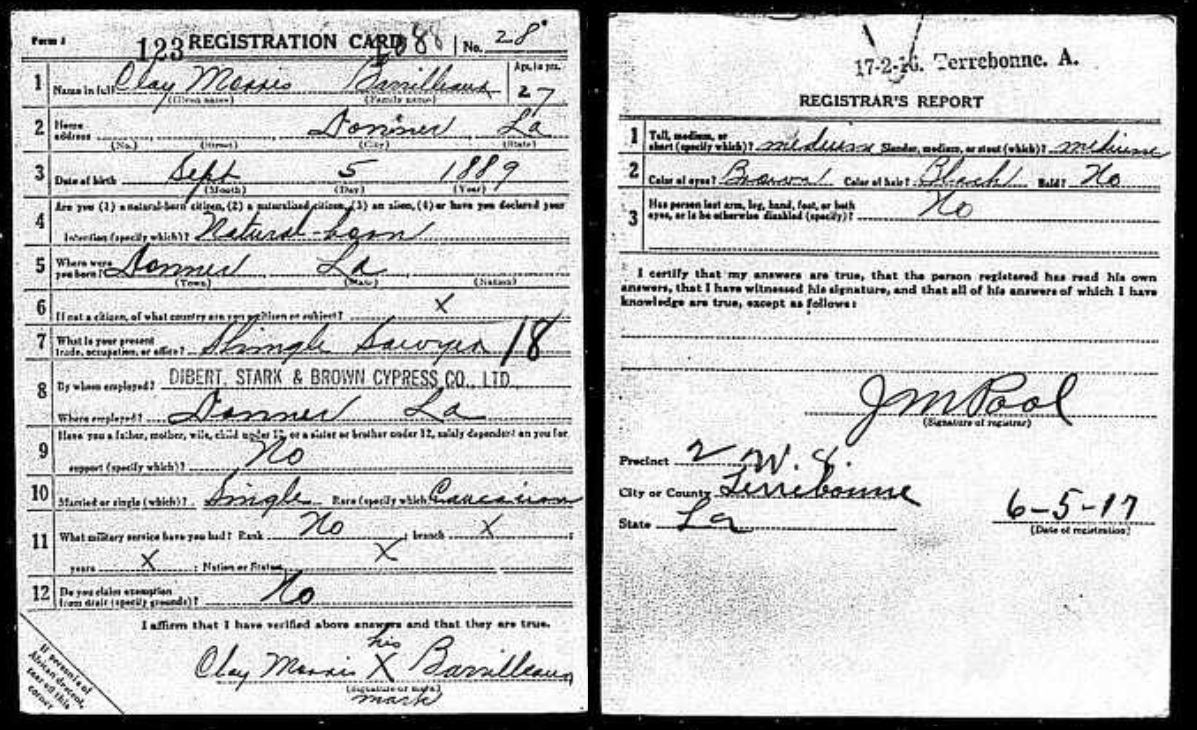 Form 1
123 REGISTRATION CARD 1088 No. 28
1 Name in full Clay Morris Barrilleaux Age, in yrs. 27
(Given name) (Family name)
2 Home address Donner La
(No.) (Street) (City) (State)
3 Date of birth Sept 5 1889
(Month) (Day) (Year)
4 Are you (1) a natural-born citizen, (2) a naturalized citizen, (3) an alien, (4) or have you declared your
intention (specify which)? Natural-born
5 Where were you born? Donner La
(Town) (State) (Nation)
6 If not a citizen, of what country are you a citizen or subject? X
7 What is your present trade, occupation, or office? Shingle Sawyer 18
8 By whom employed? DIBERT, STARK & BROWN CYPRESS CO., LTD.
Where employed? Donner La
9 Have you a father, mother, wife, child under 12, or a sister or brother under 12, solely dependent on you for
support (specify which)? No
10 Married or single (which)? Single Race (specify which) Caucasion
11 What military service have you had? Rank No ; branch X ;
years X ; Nation or State X
12 Do you claim exemption from draft (specify grounds)? No
I affirm that I have verified above answers and that they are true.
his
Clay Morris X Barrilleaux
(Signature or mark)
mark
If person is of
African descent,
tear off this
corner
17-2-16. Terrebonne. A.
REGISTRAR'S REPORT
1 Tall, medium, or short (specify which)? medium Slender, medium, or stout (which)? medium
2 Color of eyes? Brown Color of hair? Black Bald? No
3 Has person lost arm, leg, hand, foot, or both
eyes, or is he otherwise disabled (specify)? No
I certify that my answers are true, that the person registered has read his own
answers, that I have witnessed his signature, and that all of his answers of which I have
knowledge are true, except as follows:
J M Pool
(Signature of registrar)
Precinct 2 W. 8.
City or County Terrebonne
State La
6-5-17
(Date of registration)